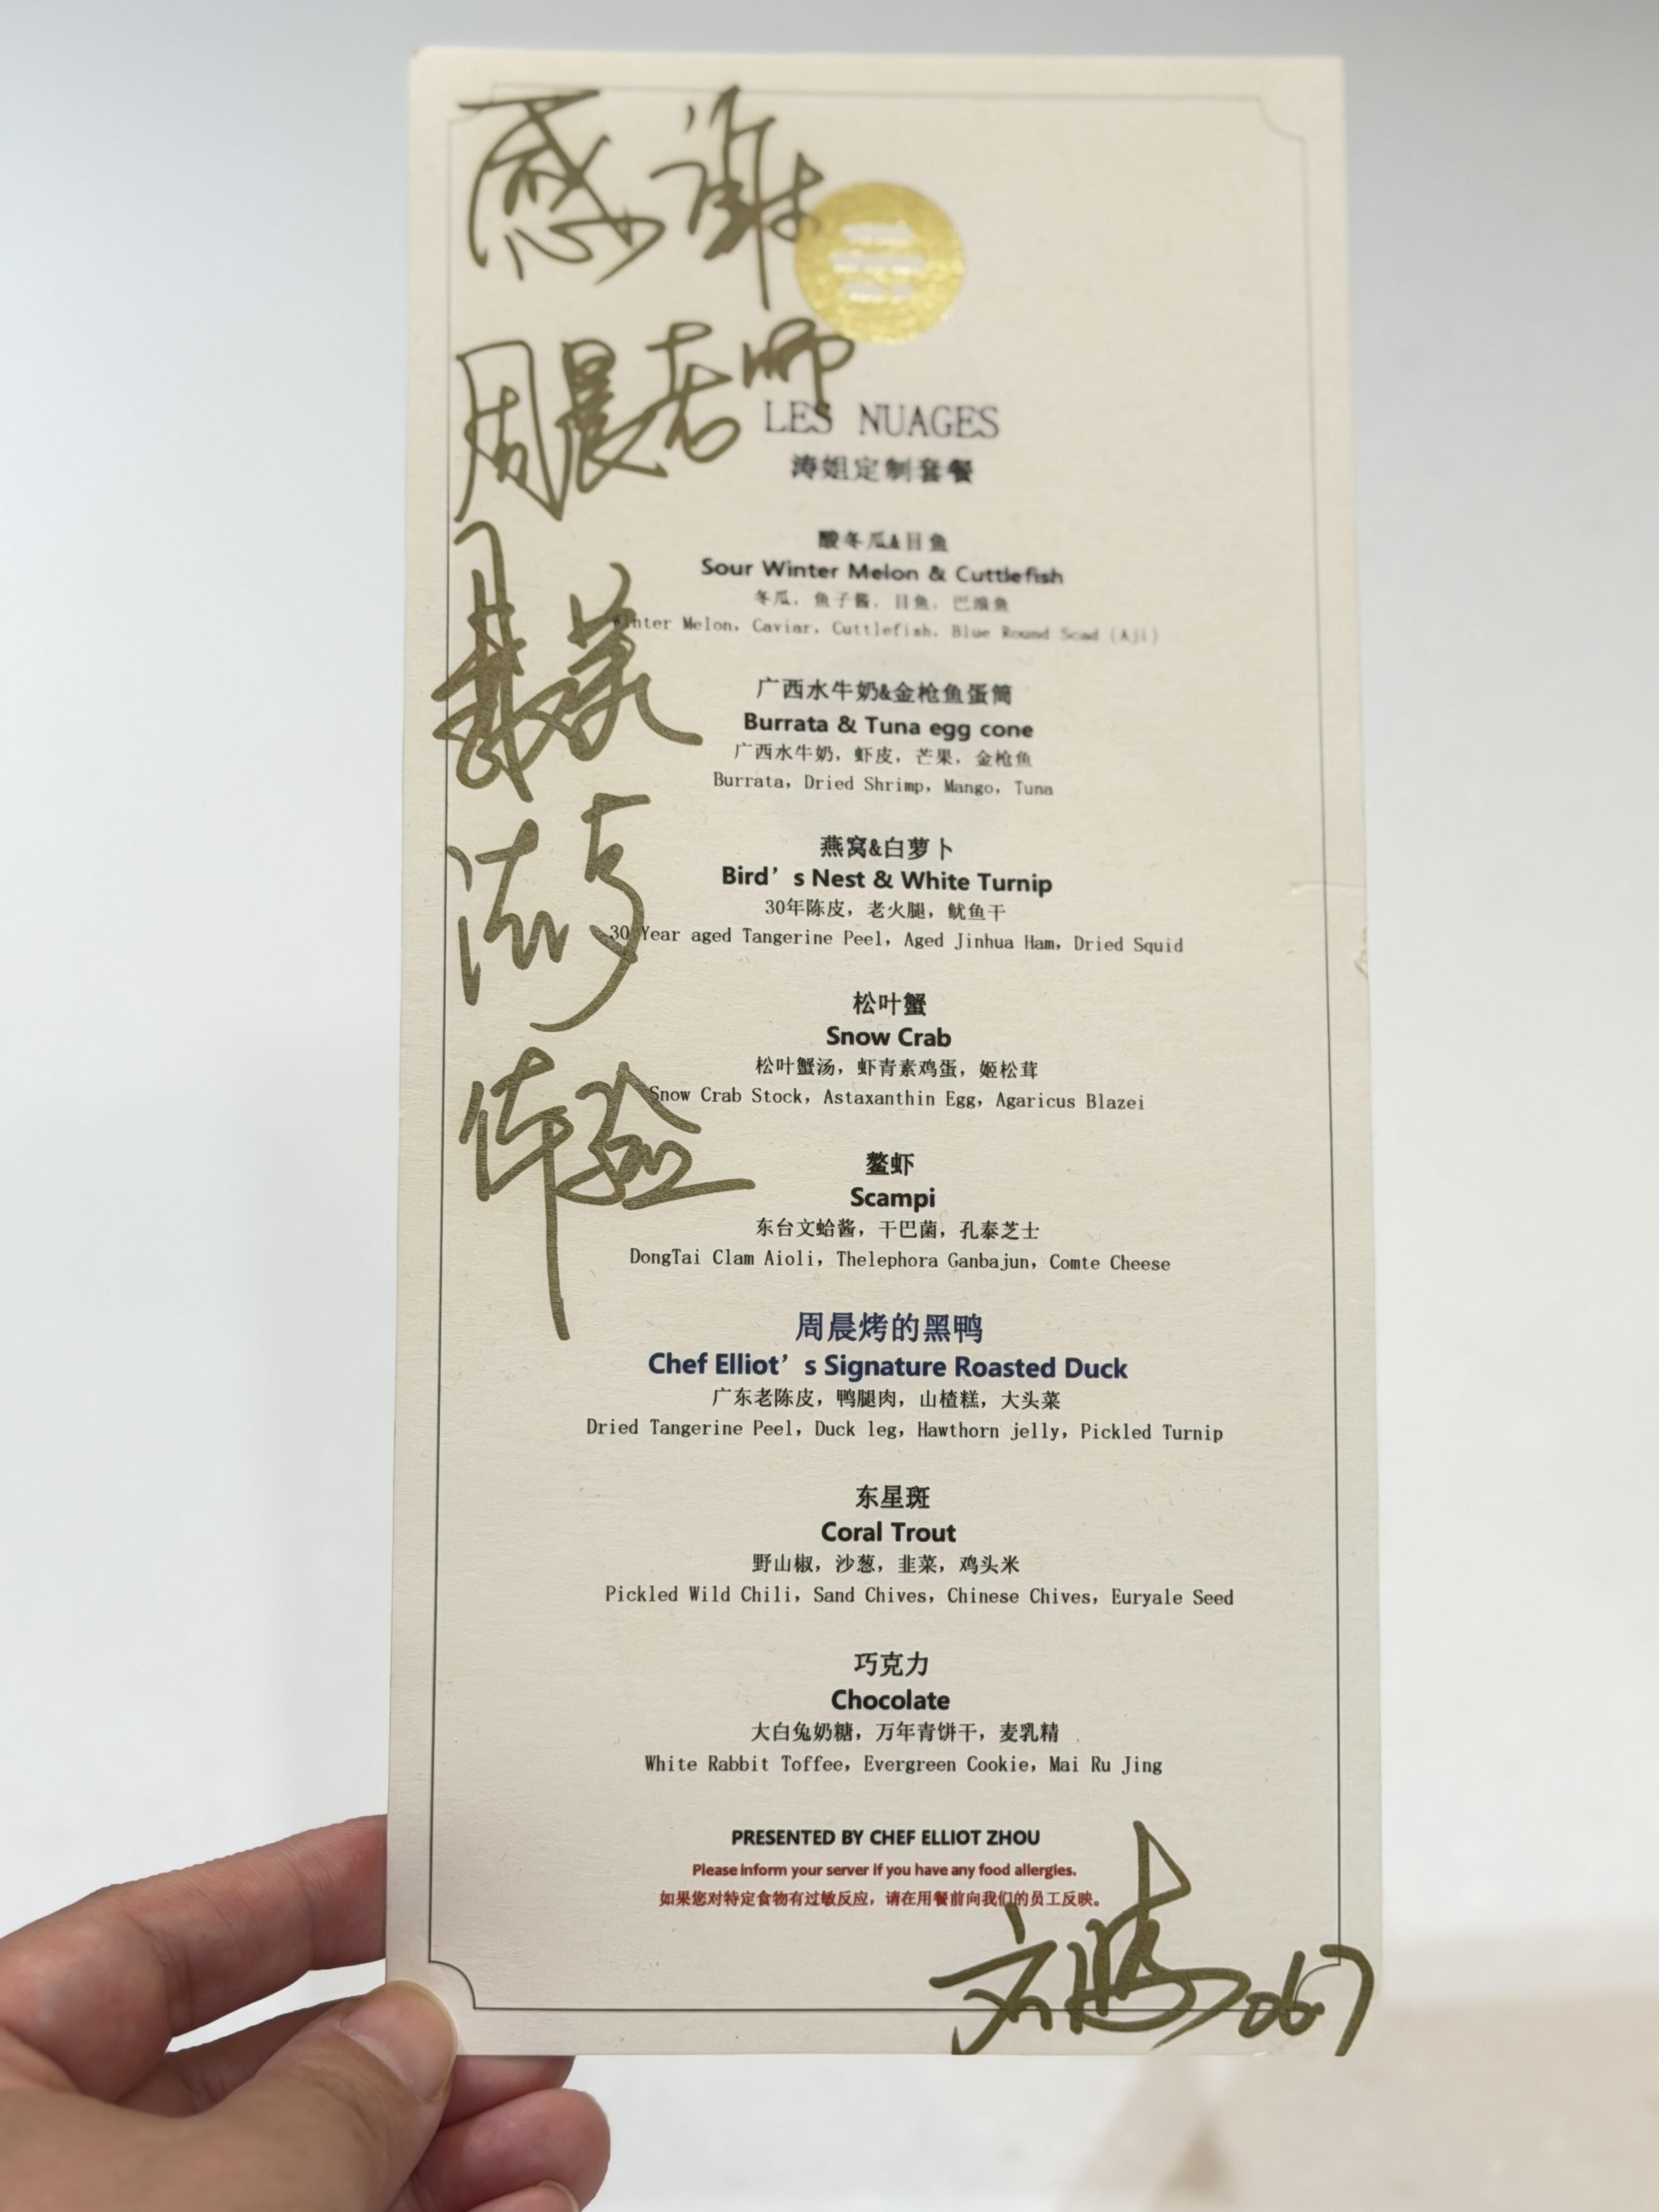 感谢
周晨老师
最美
流方
体验
LES NUAGES
涛姐定制套餐
酸冬瓜&目鱼
Sour Winter Melon & Cuttlefish
冬瓜，鱼子酱，目鱼，巴浪鱼
Winter Melon, Caviar, Cuttlefish, Blue Round Scad (Aji)
广西水牛奶&金枪鱼蛋筒
Burrata & Tuna egg cone
广西水牛奶，虾皮，芒果，金枪鱼
Burrata, Dried Shrimp, Mango, Tuna
燕窝&白萝卜
Bird's Nest & White Turnip
30年陈皮，老火腿，鱿鱼干
30 Year aged Tangerine Peel, Aged Jinhua Ham, Dried Squid
松叶蟹
Snow Crab
松叶蟹汤，虾青素鸡蛋，姬松茸
Snow Crab Stock, Astaxanthin Egg, Agaricus Blazei
鳌虾
Scampi
东台文蛤酱，干巴菌，孔泰芝士
DongTai Clam Aioli, Thelephora Ganbajun, Comte Cheese
周晨烤的黑鸭
Chef Elliot's Signature Roasted Duck
广东老陈皮，鸭腿肉，山楂糕，大头菜
Dried Tangerine Peel, Duck leg, Hawthorn jelly, Pickled Turnip
东星斑
Coral Trout
野山椒，沙葱，韭菜，鸡头米
Pickled Wild Chili, Sand Chives, Chinese Chives, Euryale Seed
巧克力
Chocolate
大白兔奶糖，万年青饼干，麦乳精
White Rabbit Toffee, Evergreen Cookie, Mai Ru Jing
PRESENTED BY CHEF ELLIOT ZHOU
Please inform your server if you have any food allergies.
如果您对特定食物有过敏反应，请在用餐前向我们的员工反映。